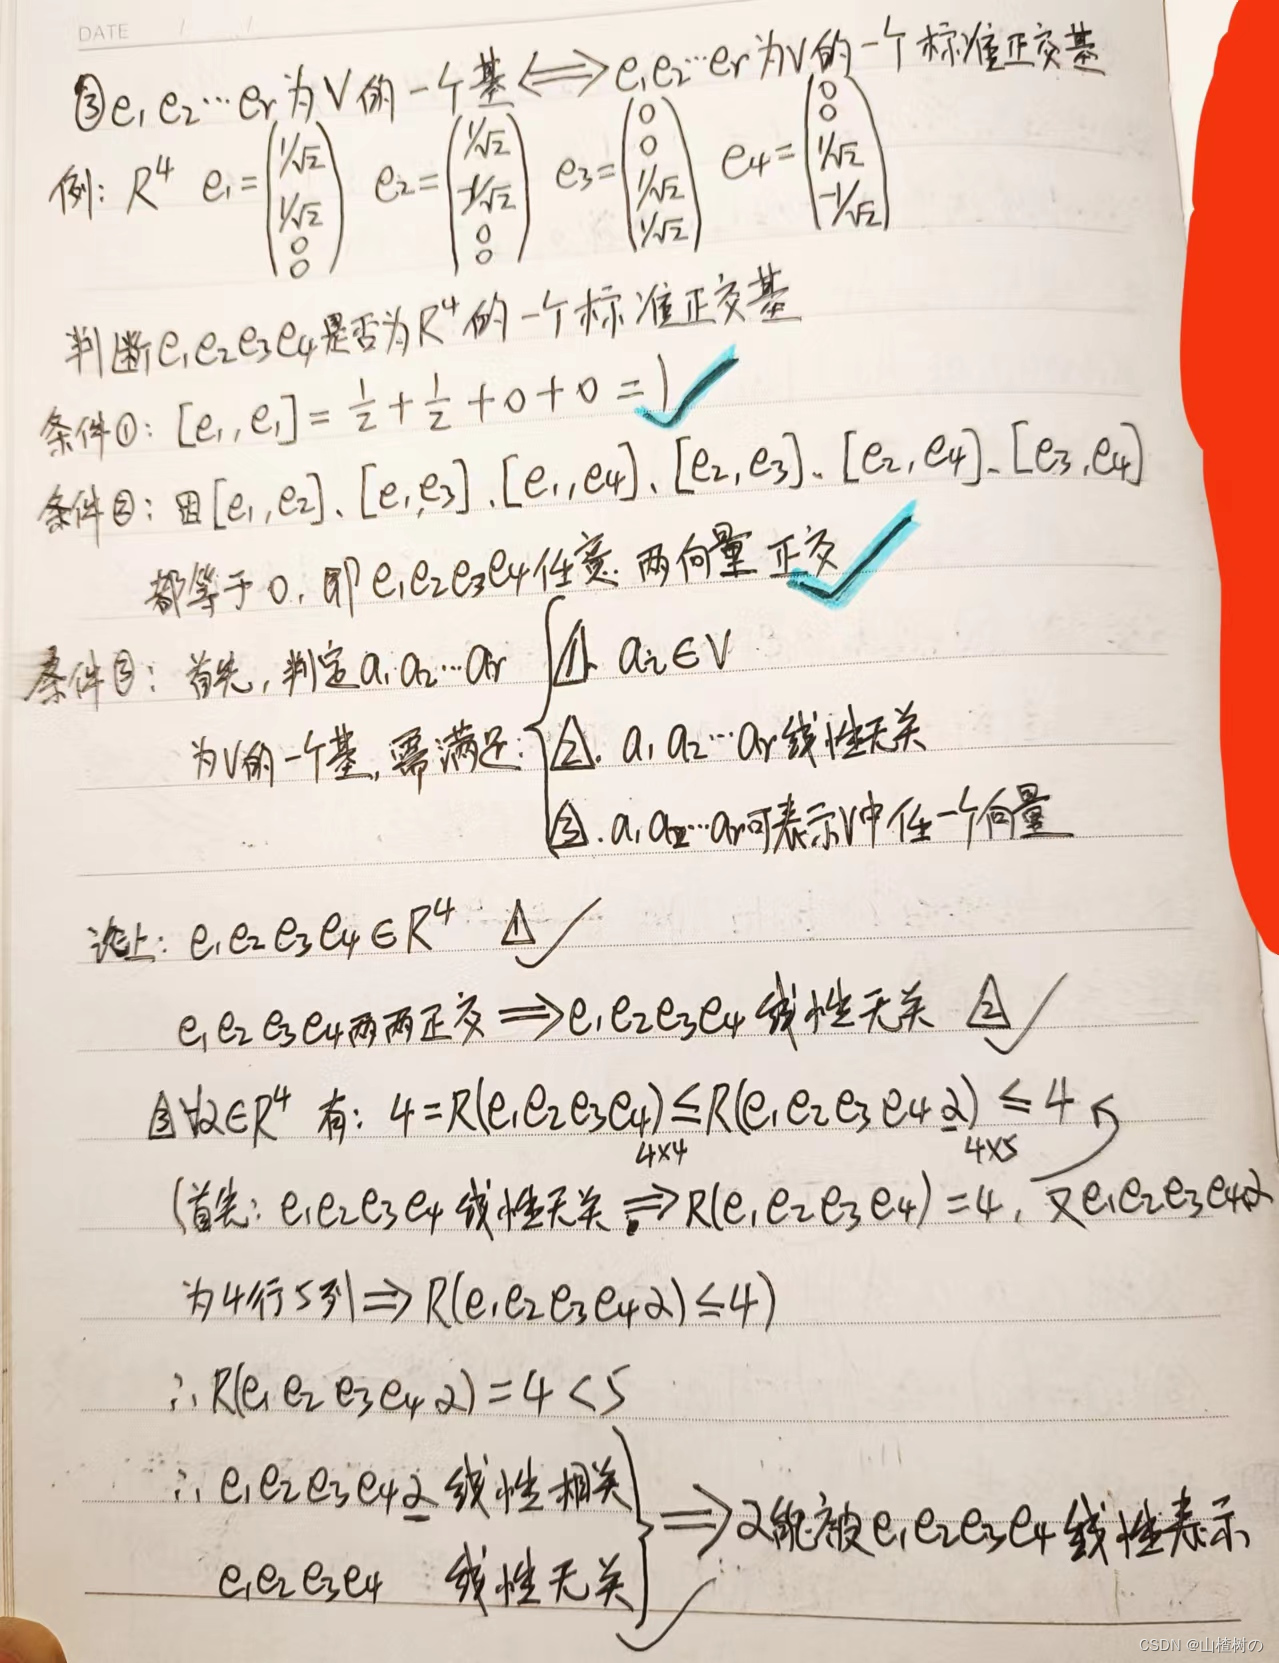 DATE / /
③e₁e₂…eᵣ为V的一个基⟺e₁e₂…eᵣ为V的一个标准正交基
例: R⁴ e₁=(1/√2 1/√2 0 0) e₂=(1/√2 -1/√2 0 0) e₃=(0 0 1/√2 1/√2) e₄=(0 0 1/√2 -1/√2)
判断e₁e₂e₃e₄是否为R⁴的一个标准正交基
条件①: [e₁,e₁]=1/2+1/2+0+0=1 ✓
条件②: 因[e₁,e₂]、[e₁,e₃]、[e₁,e₄]、[e₂,e₃]、[e₂,e₄]、[e₃,e₄]
都等于0,即e₁e₂e₃e₄任意两向量正交 ✓
条件③: 首先,判定a₁a₂…aᵣ
为V的一个基,需满足:
{ △1. aᵢ∈V
△2. a₁a₂…aᵣ线性无关
△3. a₁a₂…aᵣ可表示V中任一个向量
论上: e₁e₂e₃e₄∈R⁴ △1 ✓
e₁e₂e₃e₄两两正交⟹e₁e₂e₃e₄线性无关 △2 ✓
△3 ∀α∈R⁴ 有: 4=R(e₁e₂e₃e₄)≤R(e₁e₂e₃e₄α)≤4
4×4 4×5
(首先: e₁e₂e₃e₄线性无关⟹R(e₁e₂e₃e₄)=4, 又e₁e₂e₃e₄α
为4行5列⟹R(e₁e₂e₃e₄α)≤4)
∴R(e₁e₂e₃e₄α)=4<5
∴e₁e₂e₃e₄α线性相关
e₁e₂e₃e₄ 线性无关 } ⟹α能被e₁e₂e₃e₄线性表示 ✓
CSDN @山楂树の